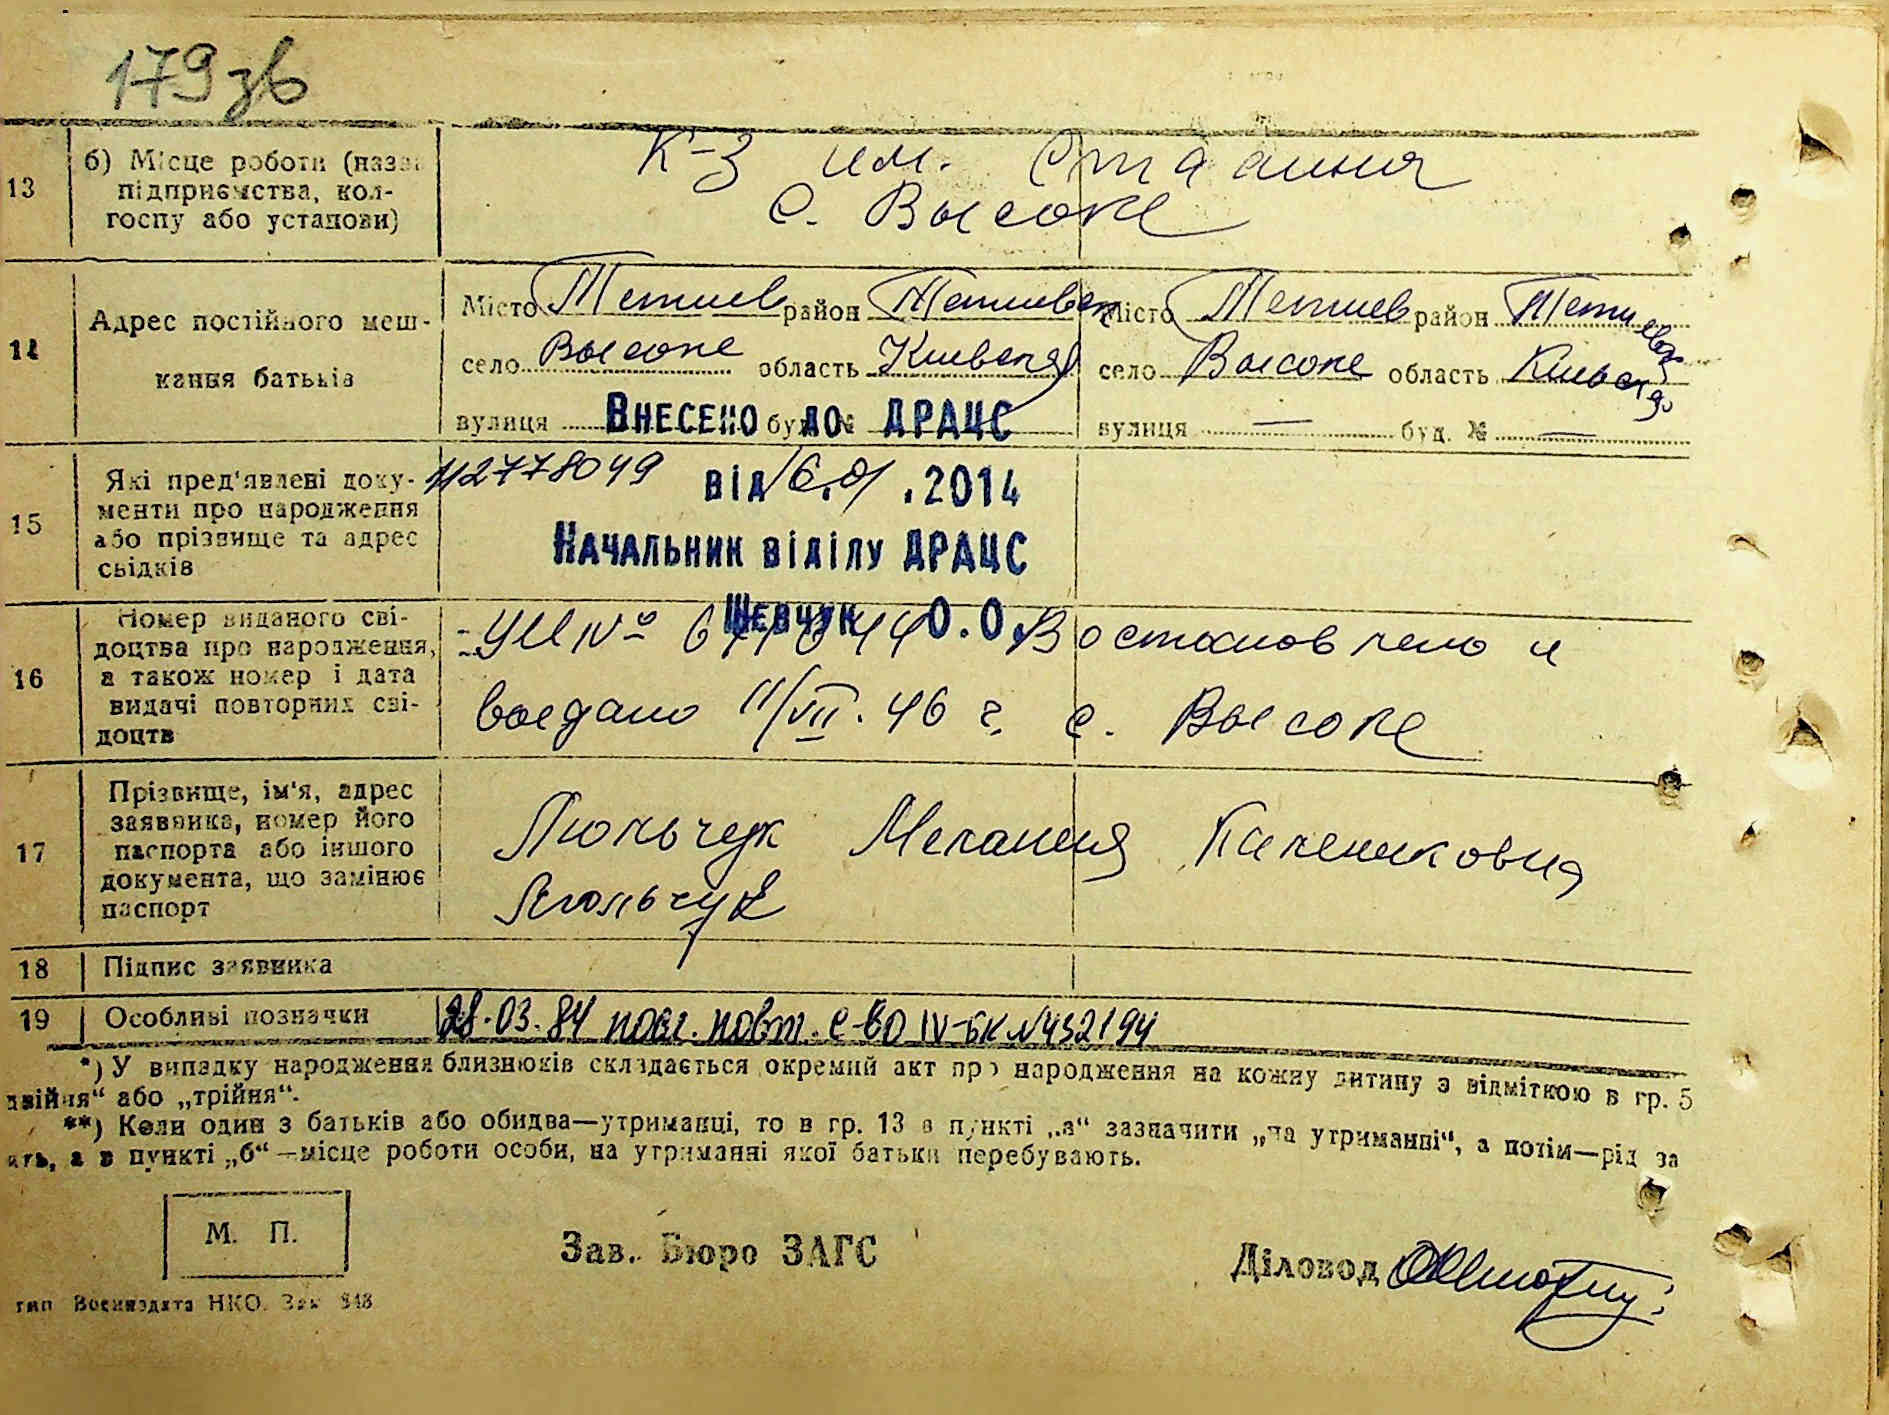 179 зв
13 б) Місце роботи (назва підприємства, колгоспу або установи)
К-з им. Сталина
с. Высоке
14 Адрес постійного мешкання батьків
Місто Тетиев район Тетиевск Місто Тетиев район Тетиевск
село Высоке область Киевская село Высоке область Киевская
вулиця буд. № вулиця — буд. № —
Внесено до ДРАЦС
15 Які пред'явлені документи про народження або прізвище та адрес свідків
112778049
від 16.01.2014
Начальник відділу ДРАЦС
Шевчук О.О.
16 Номер виданого свідоцтва про народження, а також номер і дата видачі повторних свідоцтв
Востановлено и
выдано 11/VII. 46 г. с. Высоке
17 Прізвище, ім'я, адрес заявника, номер його паспорта або іншого документа, що замінює паспорт
Люльчук Мелания Каленик­овна
Люльчук
18 Підпис заявника
19 Особливі позначки
28.03.84 повт. с-во IV-БК №432194
*) У випадку народження близнюків складається окремий акт про народження на кожну дитину з відміткою в гр. 5
двійня“ або „трійня“.
**) Коли один з батьків або обидва—утриманці, то в гр. 13 в пункті „а“ зазначити „на утриманні“, а потім—рід за
ять, а в пункті „б“—місце роботи особи, на утриманні якої батьки перебувають.
М. П.
Зав. Бюро ЗАГС
Діловод
тип Воениздата НКО. Зак 848